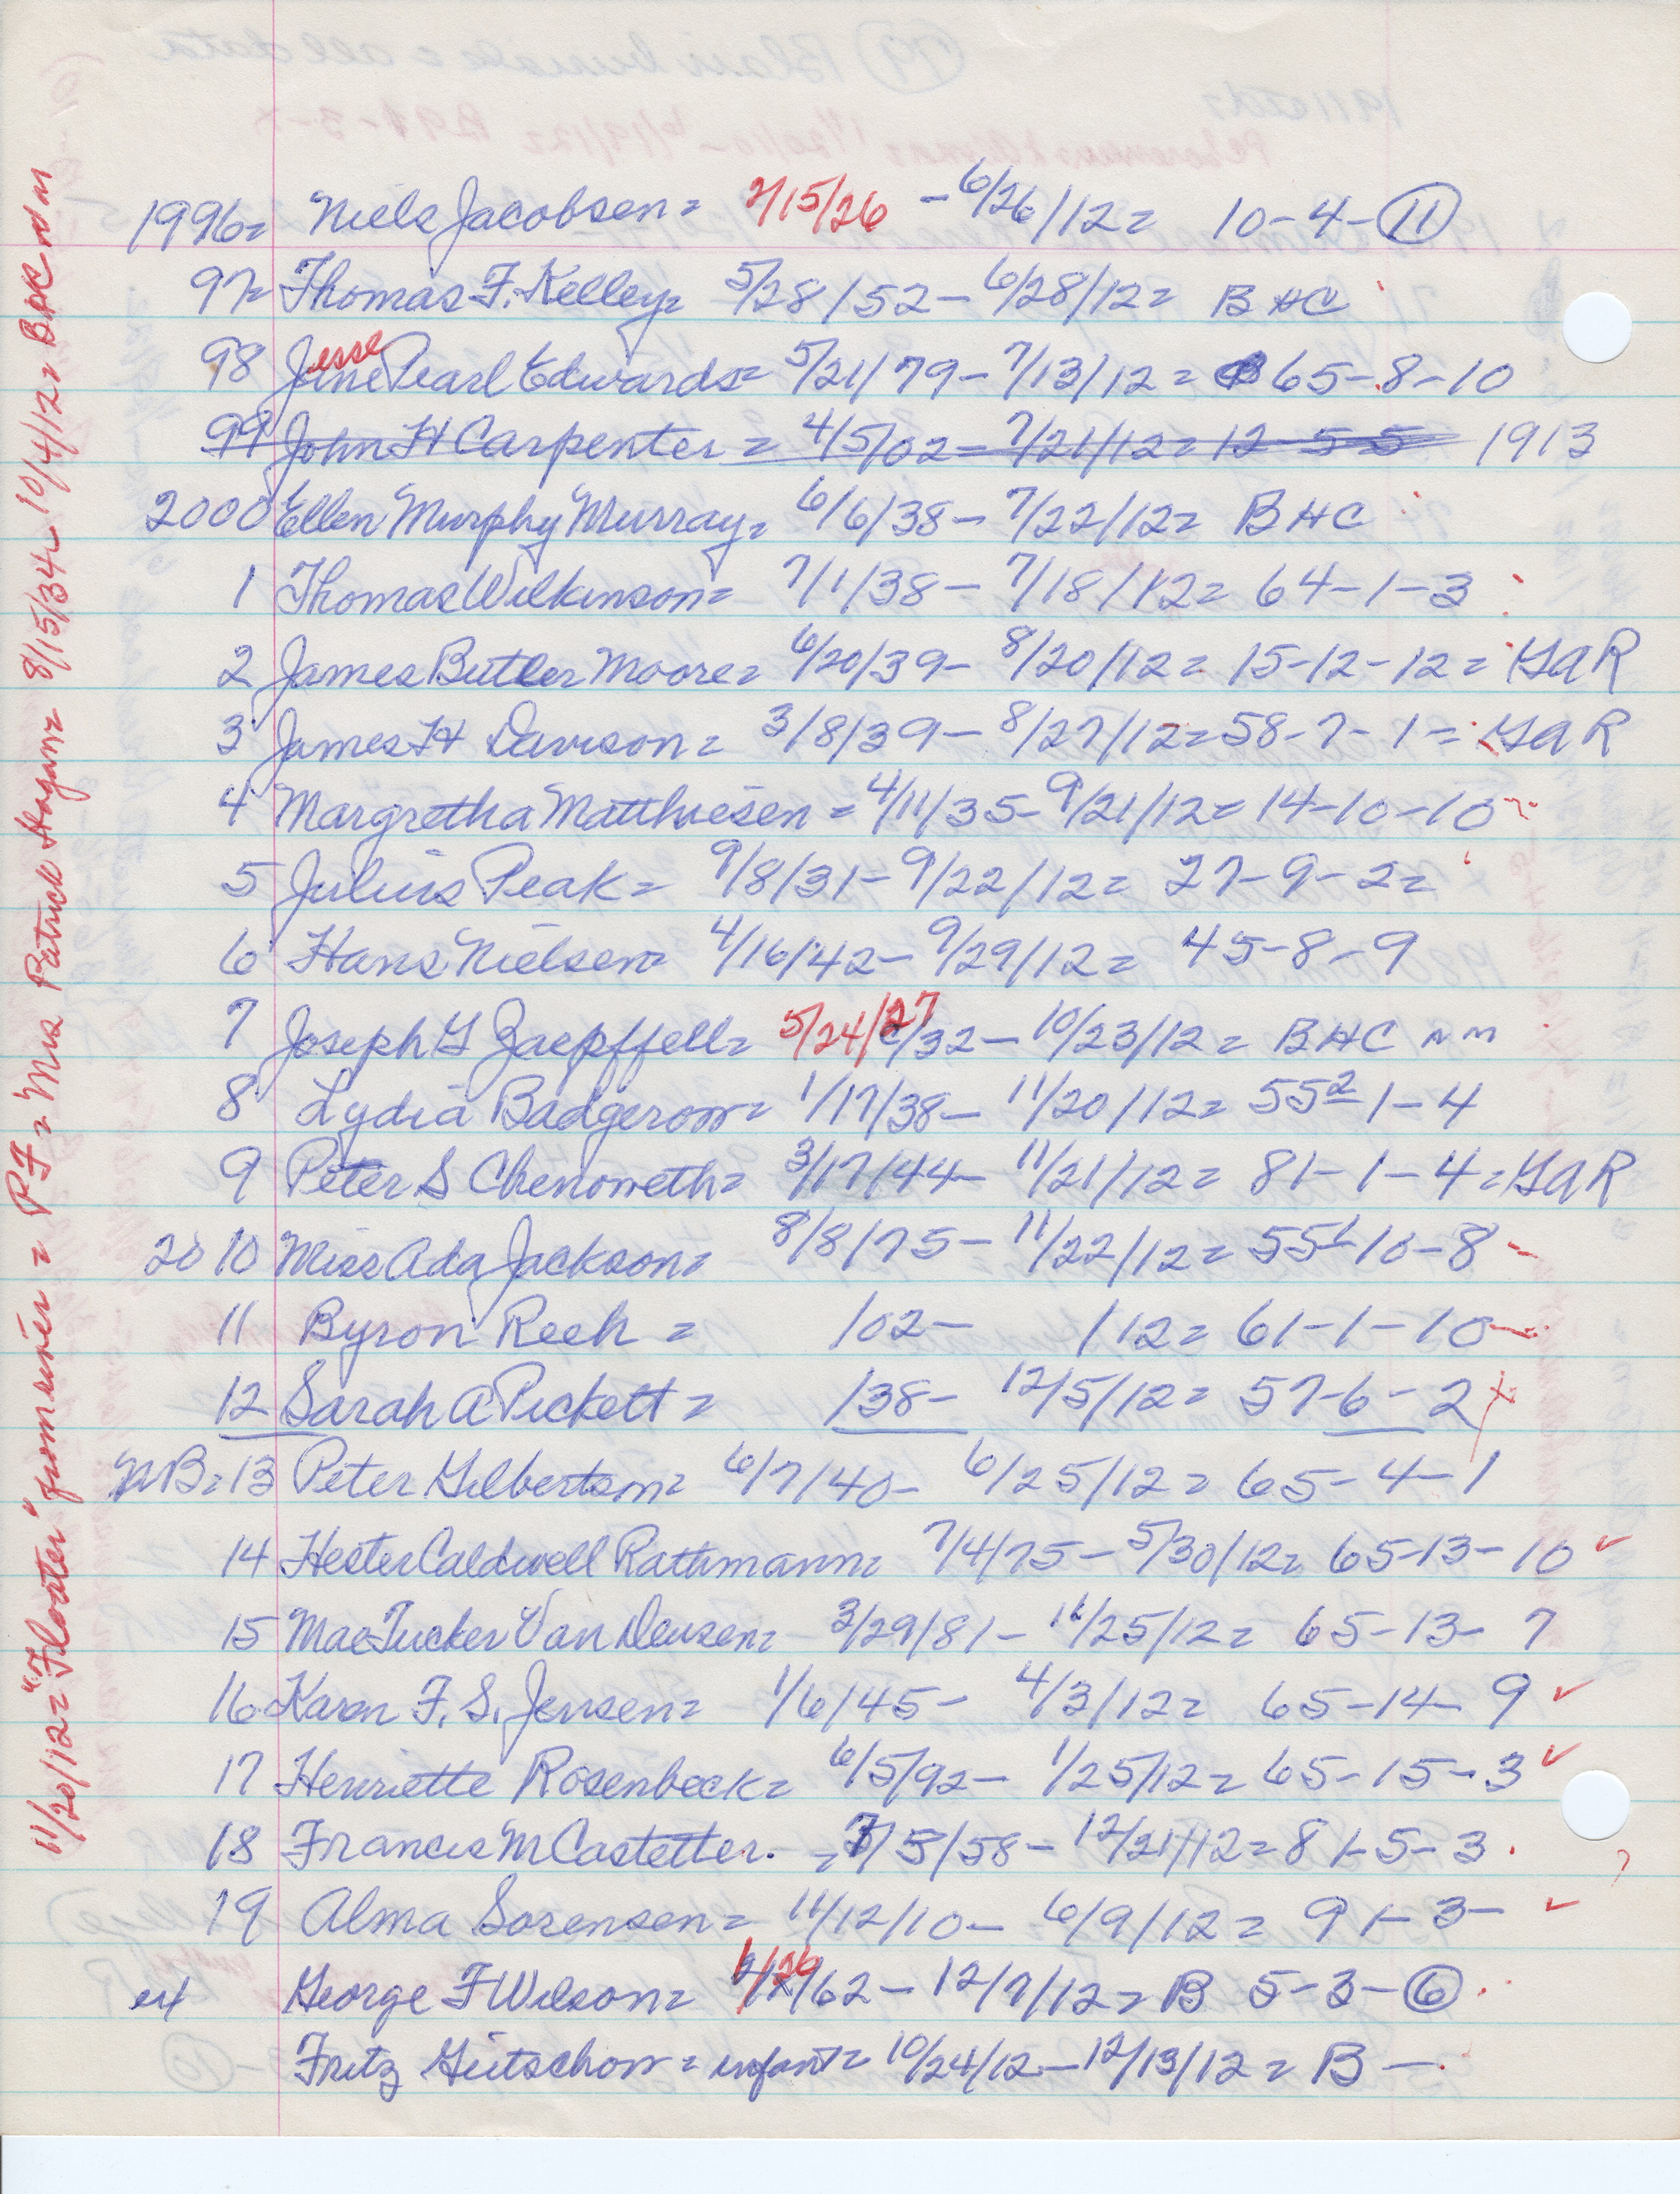 1996= Niels Jacobsen= 2/15/26 - 6/26/12= 10-4-11
97= Thomas F. Kelley= 5/28/52- 6/28/12= BHC
98 Jesse Pearl Edwards= 5/21/79- 7/13/12= 65-8-10
99 John H Carpenter= 4/5/02- 7/21/12= 12-5-5 1913
2000 Ellen Murphy Murray= 6/6/38- 7/22/12= BHC
1 Thomas Wilkinson= 7/1/38- 7/18/12= 64-1-3
2 James Butler Moore= 6/20/39- 8/20/12= 15-12-12= GAR
3 James H Davison= 3/8/39- 8/27/12= 58-7-1= GAR
4 Margretha Matthiesen= 4/11/35- 9/21/12= 14-10-10
5 Julius Peak= 9/8/31- 9/22/12= 27-9-2=
6 Hans Nielsen= 4/16/42- 9/29/12= 45-8-9
7 Joseph G Zaepffell= 5/24/27 /32- 10/23/12= BHC nm
8 Lydia Badgerow= 1/17/38- 11/20/12= 55 2 1-4
9 Peter S Chenoweth= 3/17/44- 11/21/12= 81-1-4= GAR
2010 Miss Ada Jackson= 8/8/75- 11/22/12= 55 1 10-8
11 Byron Reeh= /02- /12= 61-1-10
12 Sarah A Pickett= /38- 12/5/12= 57-6-2
NB=13 Peter Gilbertson= 6/7/40- 6/25/12= 65-4-1
14 Hester Caldwell Rathmann= 7/4/75- 5/30/12= 65-13-10 ✓
15 Mae Tucker Van Deusen= 3/29/81- 11/25/12= 65-13-7
16 Karen F. S. Jensen= 1/6/45- 4/3/12= 65-14-9 ✓
17 Henriette Rosenbeck= 6/5/92- 1/25/12= 65-15-3 ✓
18 Francis M Castetter. = 7/5/58- 12/21/12= 81-5-3
19 Alma Sorensen= 11/12/10- 6/9/12= 91-3- ✓
George F Wilson= 1/26/62- 12/7/12= B 5-3-6
Fritz Gutschow= infant= 10/24/12- 12/13/12= B -
11/20/12= "Floater" from river= PF= Mrs Patrick Hogan= 8/15/34- 10/4/12= BHC nm